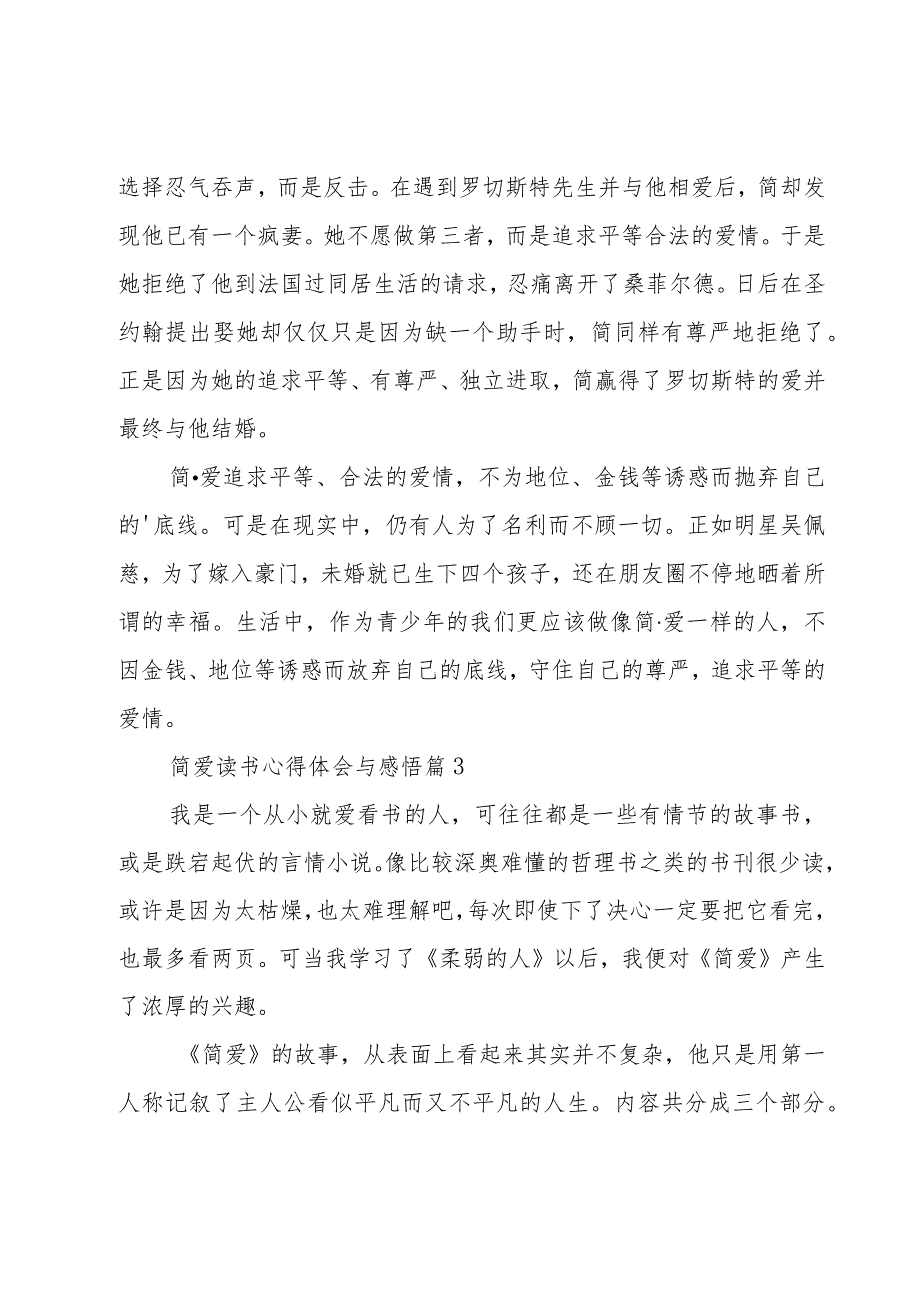 选择忍气吞声，而是反击。在遇到罗切斯特先生并与他相爱后，简却发
现他已有一个疯妻。她不愿做第三者，而是追求平等合法的爱情。于是
她拒绝了他到法国过同居生活的请求，忍痛离开了桑菲尔德。日后在圣
约翰提出娶她却仅仅只是因为缺一个助手时，简同样有尊严地拒绝了。
正是因为她的追求平等、有尊严、独立进取，简赢得了罗切斯特的爱并
最终与他结婚。
简•爱追求平等、合法的爱情，不为地位、金钱等诱惑而抛弃自己
的'底线。可是在现实中，仍有人为了名利而不顾一切。正如明星吴佩
慈，为了嫁入豪门，未婚就已生下四个孩子，还在朋友圈不停地晒着所
谓的幸福。生活中，作为青少年的我们更应该做像简·爱一样的人，不
因金钱、地位等诱惑而放弃自己的底线，守住自己的尊严，追求平等的
爱情。
简爱读书心得体会与感悟篇3
我是一个从小就爱看书的人，可往往都是一些有情节的故事书，
或是跌宕起伏的言情小说。像比较深奥难懂的哲理书之类的书刊很少读，
或许是因为太枯燥，也太难理解吧，每次即使下了决心一定要把它看完，
也最多看两页。可当我学习了《柔弱的人》以后，我便对《简爱》产生
了浓厚的兴趣。
《简爱》的故事，从表面上看起来其实并不复杂，他只是用第一
人称记叙了主人公看似平凡而又不平凡的人生。内容共分成三个部分。